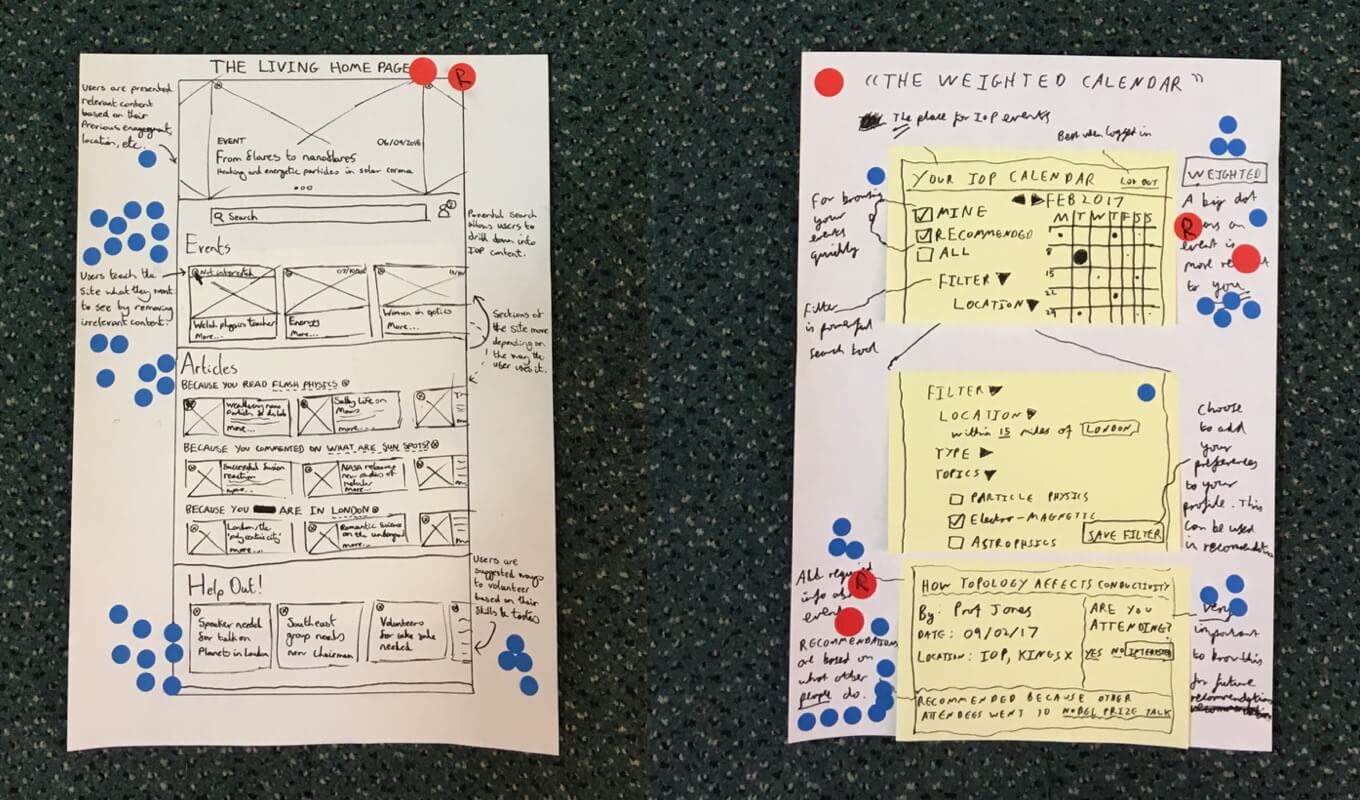 THE LIVING HOME PAGE
R
Users are presented
relevant content
based on their
Previous engagement,
location, etc.
EVENT
06/09/2018
From flares to nanoflares
Heating and energetic particles in solar corona
Search
Powerful search
allows users to
drill down into
IOP content.
Events
Users teach the
site what they want
to see by removing
irrelevant content.
Not interested
Welsh physics teacher
More...
Energy
More...
Women in optics
More...
Sections of
the site move
depending on
the way the
user uses it.
Articles
BECAUSE YOU READ FLASH PHYSICS
more...
Salty life on
Mars
more...
BECAUSE YOU COMMENTED ON WHAT ARE SUN SPOTS?
Successful fusion
reaction
more...
NASA releases
new
more...
BECAUSE YOU ARE IN LONDON
London, the
'polycentric city'
more...
Romantic Science
on the underground
more...
Help Out!
Speaker needed
for talk on
Planets in London
South east
group needs
new chairman
Volunteers
for
needed
Users are
suggested ways
to volunteer
based on their
Skills & tastes
"THE WEIGHTED CALENDAR"
The place for IOP events
Best when logged in
YOUR IOP CALENDAR
LOG OUT
FEB 2017
M T W T F S S
8
15
22
29
MINE
RECOMMENDED
ALL
FILTER
LOCATION
For browsing
your
events
quickly
Filter
is powerful
search tool
WEIGHTED
A big dot
R
on an
event is
more
to you
FILTER
LOCATION
within 15 miles of LONDON
TYPE
TOPICS
PARTICLE PHYSICS
ELECTRO-MAGNETIC
ASTROPHYSICS
SAVE FILTER
Choose
to add
your
preferences
to your
profile. This
can be used
in recommendations
All required
info
event
R
RECOMMENDATIONS
are based on
what other
people do.
HOW TOPOLOGY AFFECTS CONDUCTIVITY
By: Prof Jones
DATE: 09/02/17
LOCATION: IOP, KINGS X
ARE YOU
ATTENDING?
YES NO INTERESTED
RECOMMENDED BECAUSE OTHER
ATTENDEES WENT TO NOBEL PRIZE TALK
Very
important
to know this
for future
recommendations